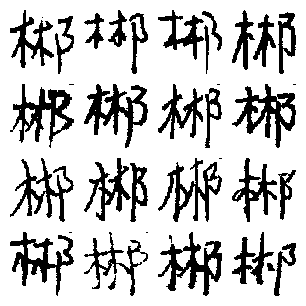 郴郴郴郴
郴郴郴郴
郴郴郴郴
郴郴郴郴